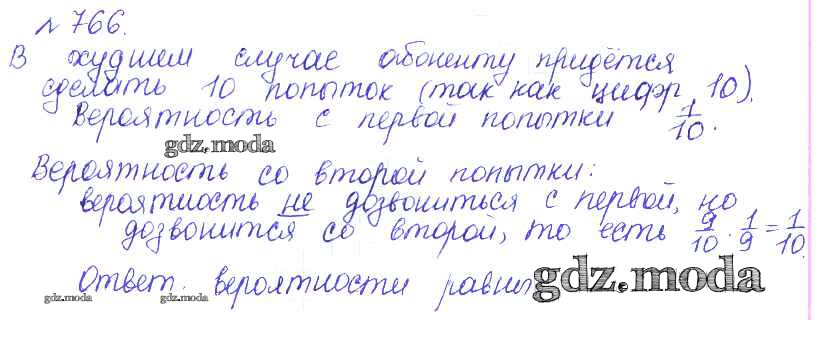 № 766.
В худшем случае абоненту придётся
сделать 10 попыток (так как цифр 10).
Вероятность с первой попытки 1/10.
gdz.moda
Вероятность со второй попытки:
вероятность не дозвониться с первой, но
дозвонится со второй, то есть 9/10 · 1/9 = 1/10.
Ответ. вероятности равны
gdz.moda
gdz.moda
gdz.moda